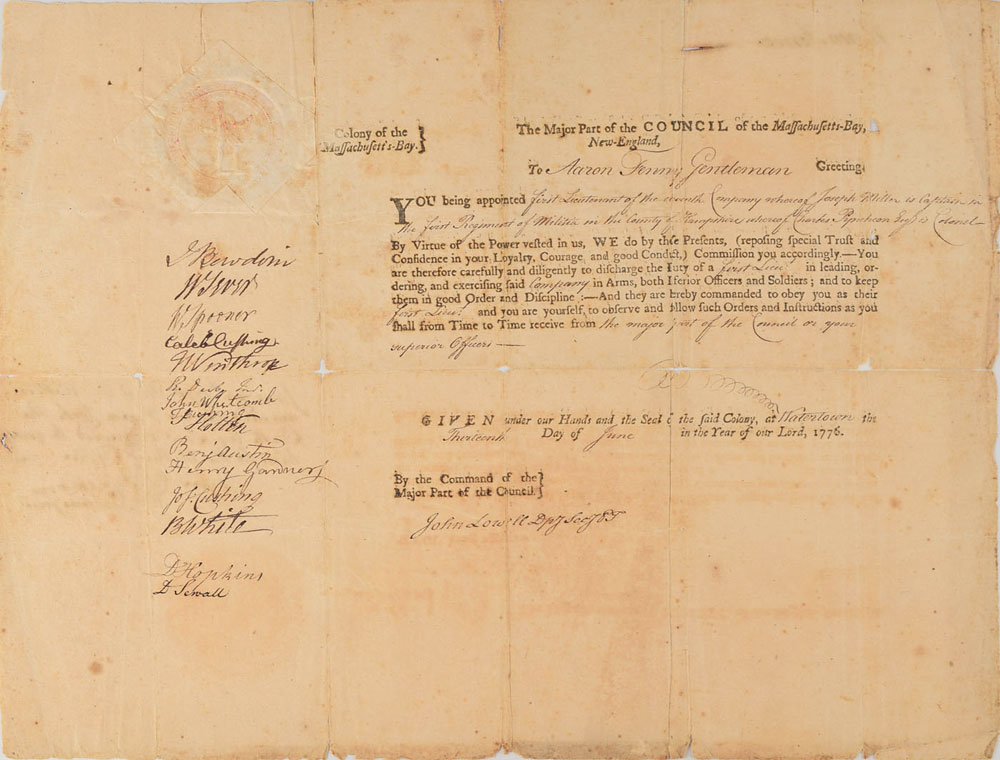 Colony of the
Massachusett's-Bay. }
The Major Part of the COUNCIL of the Massachusetts-Bay,
New-England,
To Aaron Gentleman Greeting.
YOU being appointed first Lieutenant of the Company whereof Joseph Miller is Captain in
the first Regiment of Militia in the County of Hampshire whereof Charles Esq. is Colonel
By Virtue of the Power vested in us, WE do by these Presents, (reposing special Trust and
Confidence in your Loyalty, Courage, and good Conduct,) Commission you accordingly.—You
are therefore carefully and diligently to discharge the Duty of a first Lieut. in leading, or-
dering, and exercising said Company in Arms, both Inferior Officers and Soldiers; and to keep
them in good Order and Discipline:—And they are hereby commanded to obey you as their
first Lieut. and you are yourself, to observe and follow such Orders and Instructions as you
shall from Time to Time receive from the major part of the Council or your
superior Officers—
GIVEN under our Hands and the Seal of the said Colony, at Watertown the
Thirteenth Day of June in the Year of our Lord, 1776.
By the Command of the
Major Part of the Council. }
John Lowell Dpy Secy
J Bowdoin
W Sever
W Spooner
Caleb Cushing
J Winthrop
John Whetcomb
Holten
Benj Austin
Henry Gardner
Jos. Cushing
B White
D Hopkins
D Sewall